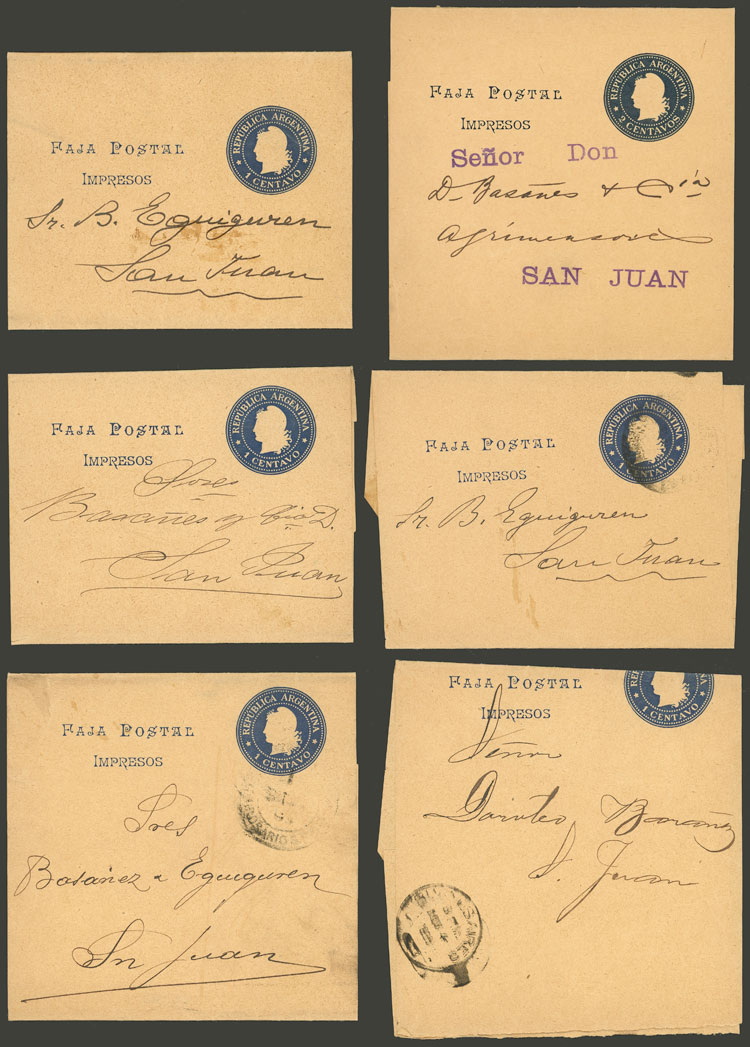 REPÚBLICA ARGENTINA
1 CENTAVO
FAJA POSTAL
IMPRESOS
Sr. B. Eguiguren
San Juan
REPÚBLICA ARGENTINA
2 CENTAVOS
FAJA POSTAL
IMPRESOS
Señor Don
D. Basañes & Cía
Agrimensores
SAN JUAN
REPÚBLICA ARGENTINA
1 CENTAVO
FAJA POSTAL
IMPRESOS
Sres
Basañes y Cia D.
San Juan
REPÚBLICA ARGENTINA
1 CENTAVO
FAJA POSTAL
IMPRESOS
Sr. B. Eguiguren
San Juan
REPÚBLICA ARGENTINA
1 CENTAVO
FAJA POSTAL
IMPRESOS
Sres
Basañez & Eguiguren
Sn Juan
1 CENTAVO
FAJA POSTAL
IMPRESOS
Señor
Doroteo Basañez
S. Juan